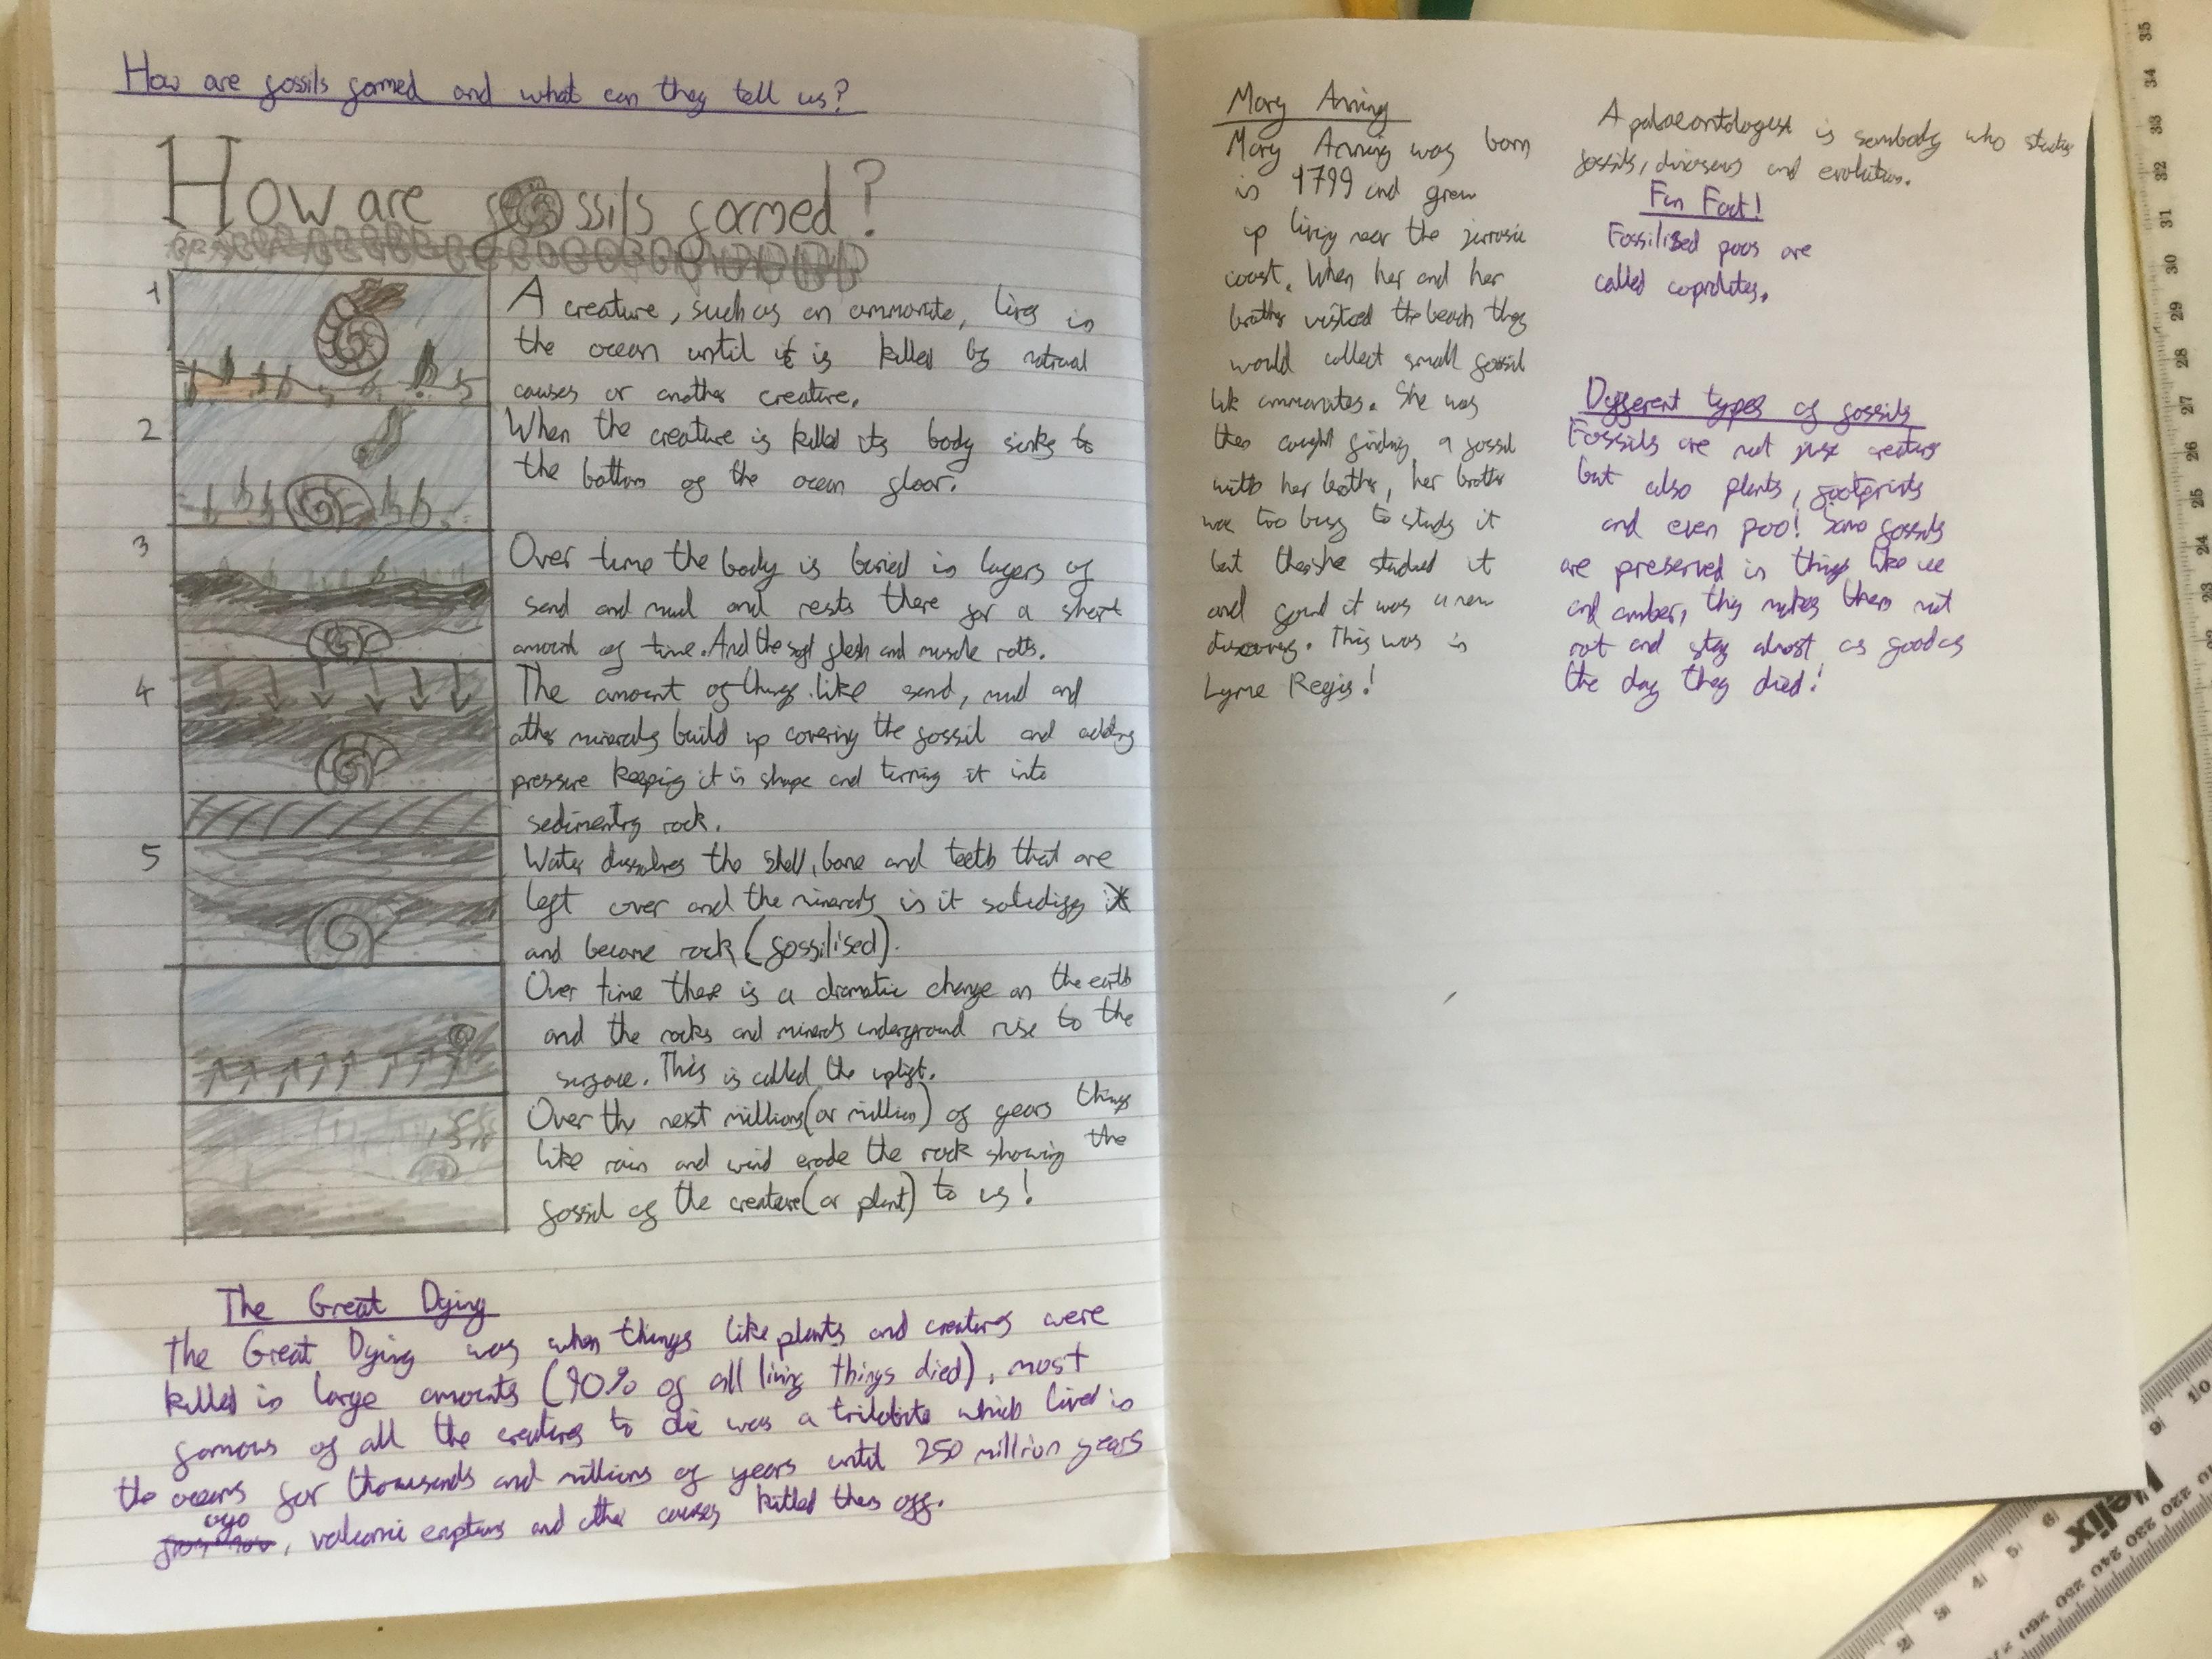 How are fossils formed and what can they tell us?
How are fossils formed?
1
A creature, such as an ammonite, lives in
the ocean until it is killed by natural
causes or another creature.
2
When the creature is killed its body sinks to
the bottom of the ocean floor.
3
Over time the body is buried in layers of
sand and mud and rests there for a short
amount of time. And the soft flesh and muscle rotts.
4
The amount of things like sand, mud and
other minerals build up covering the fossil and adding
pressure keeping it in shape and turning it into
sedimentry rock.
5
Water dissolves the shell, bone and teeth that are
left over and the minerals in it
and become rock (fossilised).
Over time there is a dramatic change on the earth
and the rocks and minerals underground rise to the
surface. This is called the uplift.
Over the next millions (or million) of years things
like rain and wind erode the rock showing the
fossil of the creature (or plant) to us!
The Great Dying
The Great Dying was when things like plants and creatures were
killed in large amounts (90% of all living things died), most
famous of all the creatures to die was a trilobite which lived in
the oceans for thousands and millions of years until 250 million years
ago, volcanic and other causes killed them off.
Mary Anning
Mary Anning was born
in 1799 and grew
up living near the jurrasic
coast. When her and her
brother visited the beach they
would collect small fossil
like ammonites. She was
then caught finding a fossil
with her brother, her brother
was too busy to study it
but then she studied it
and found it was a new
discovery. This was in
Lyme Regis!
A palaeontologist is somebody who studies
fossils, dinosaurs and evolution.
Fun Fact!
Fossilised poos are
called coprolites.
Different types of fossils
Fossils are not just creatures
but also plants, footprints
and even poo! Some fossils
are preserved in things like ice
and amber, this makes them not
rot and stay almost as good as
the day they died!
35
34
33
32
31
30
29
28
27
26
25
24
23
Helix
10
9
6
5
4
3
2
220
230
240
250
260